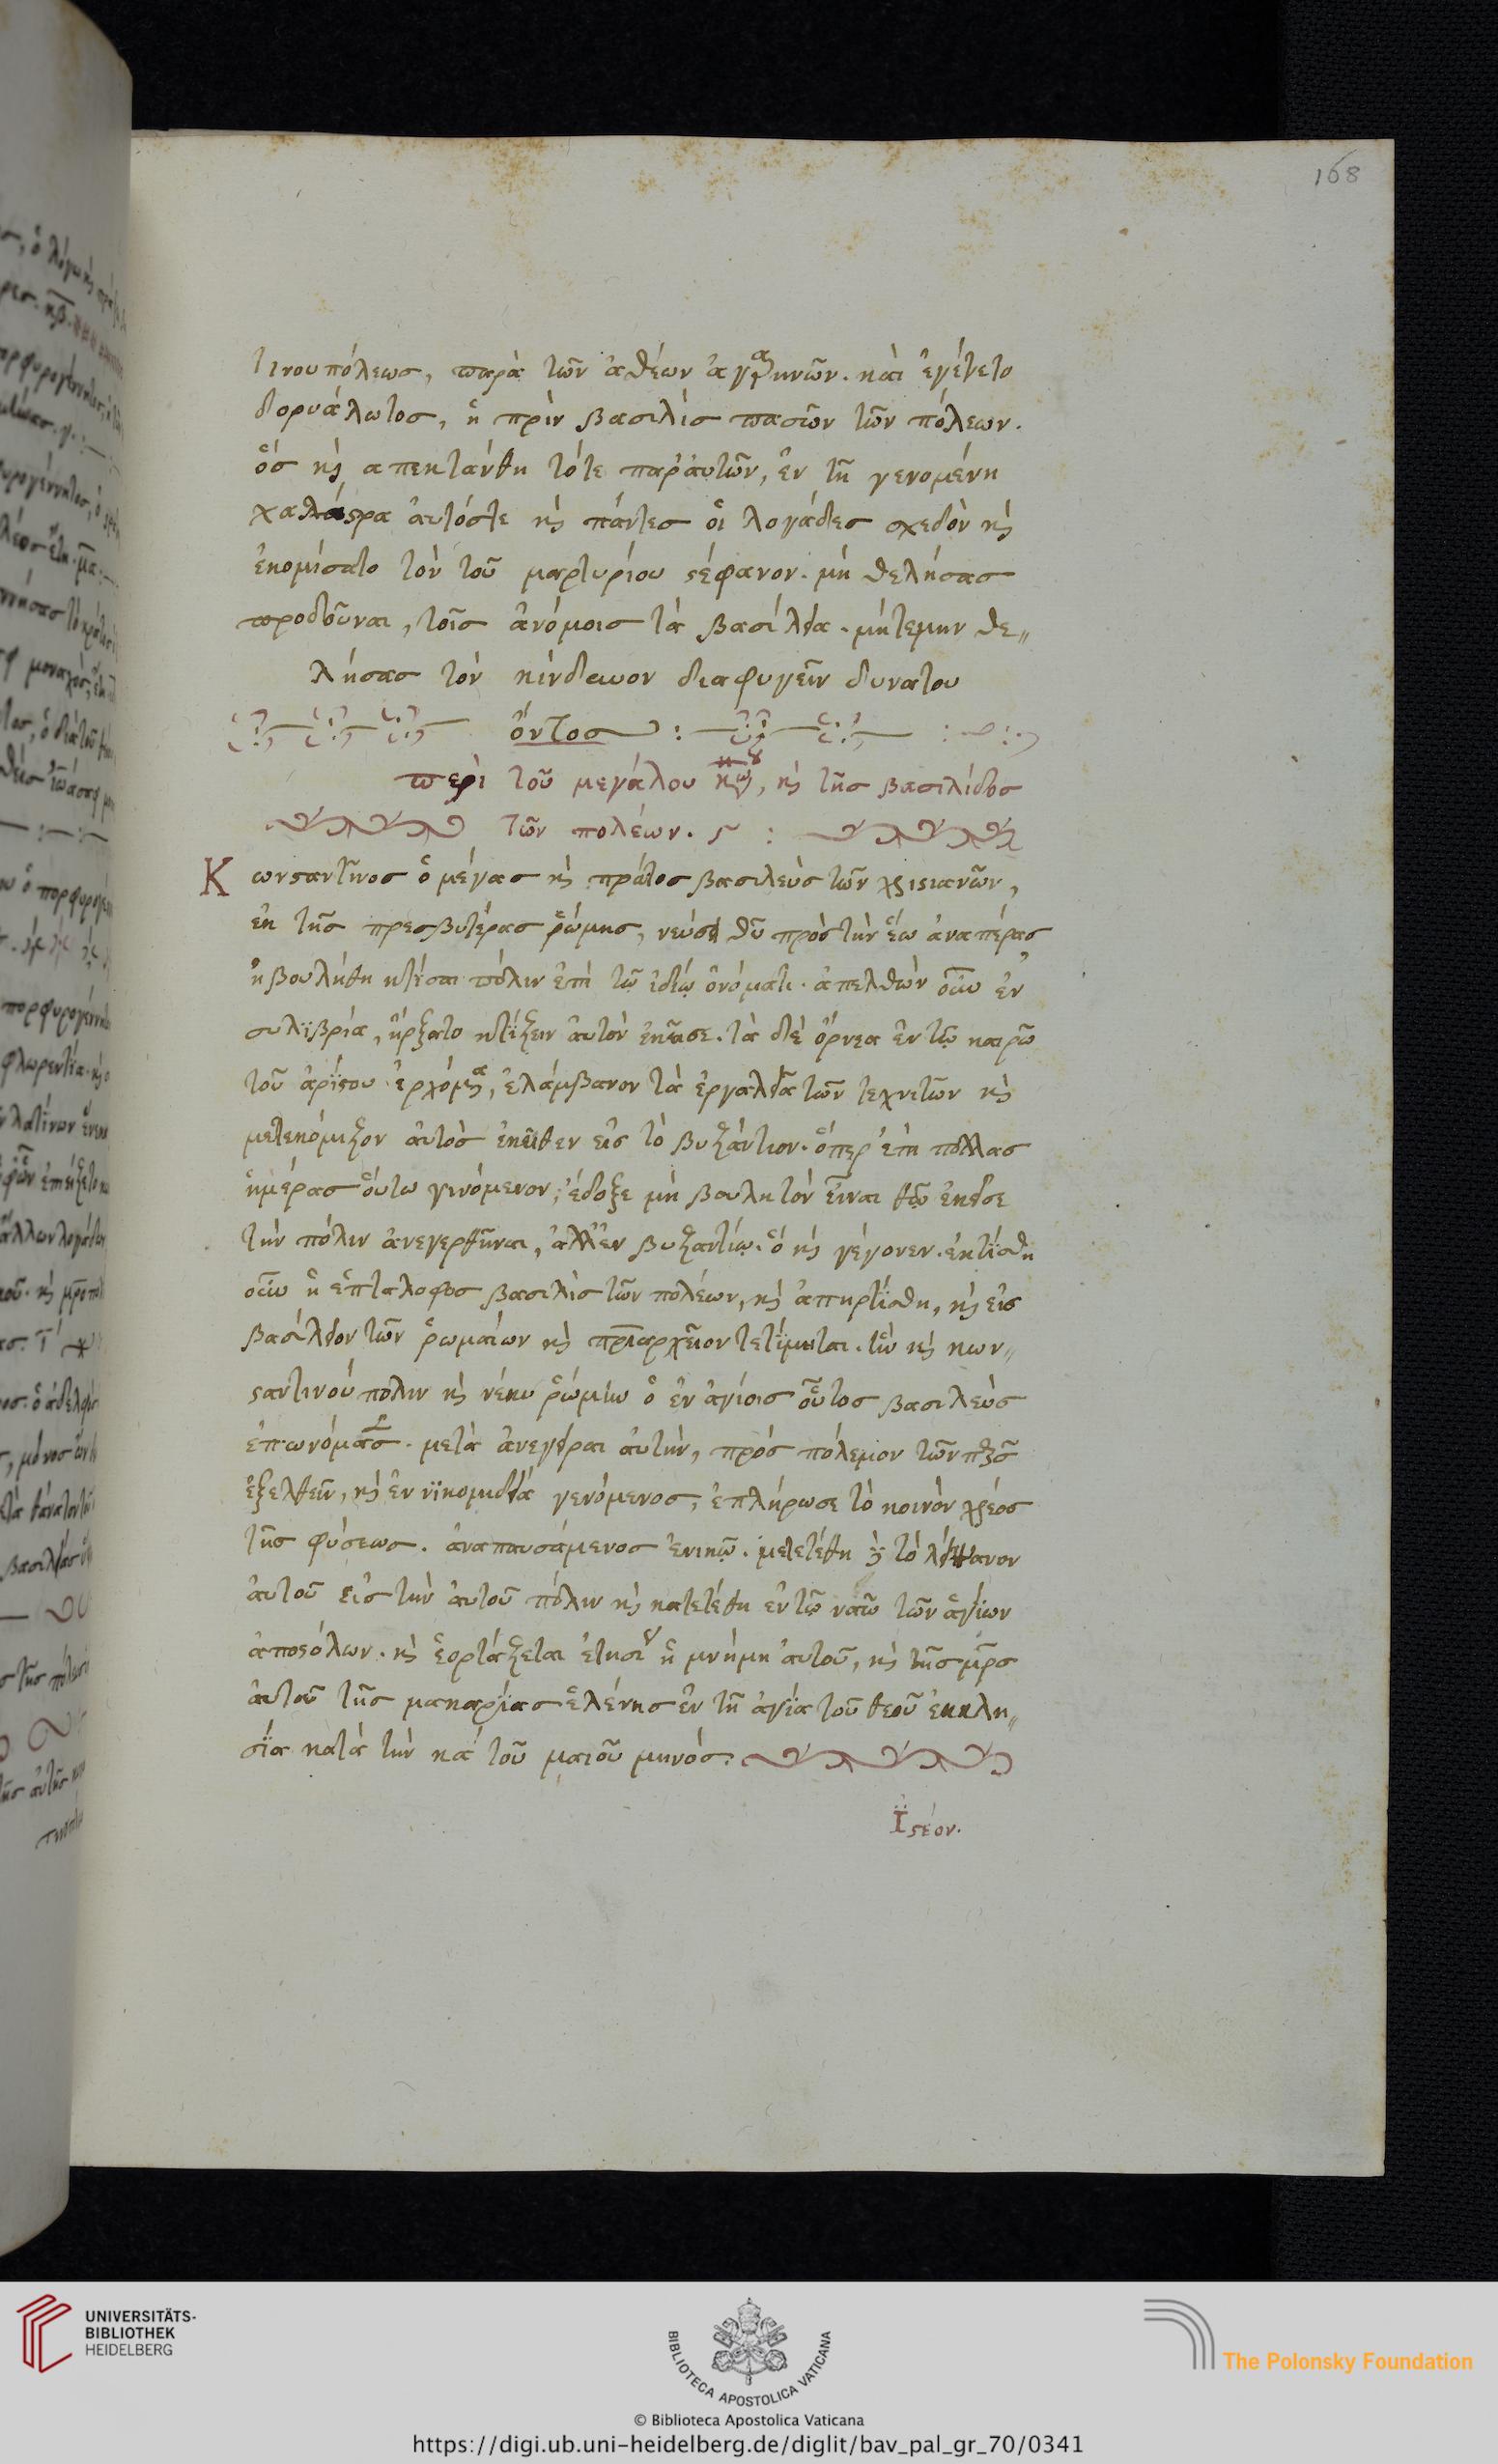 168
τινουπόλεως, παρὰ τῶν ἀθέων ἀγαρηνῶν. καὶ ἐγένετο
δορυάλωτος, ἡ πρὶν βασιλὶς πασῶν τῶν πόλεων.
ὃς κ(αὶ) απεκτάνθη τότε παρ' αυτῶν, ἐν τῇ γενομένη
χαλάστρα ἀυτόσε κ(αὶ) πάντες οἱ λογάδες σχεδὸν κ(αὶ)
ἐκομίσατο τὸν τοῦ μαρτυρίου στέφανον. μὴ θελήσας
προδοῦναι, τοῖς ἀνόμοις τὰ βασίλεια. μήτε μὴν θε〃
λήσας τὸν κίνδυνον διαφυγεῖν δυνατου
ὄντος :
περὶ τοῦ μεγάλου κων, κ(αὶ) τῆς βασιλίδος
τῶν πολέων. :
Κωνσταντῖνος ὁ μέγας κ(αὶ) πρῶτος βασιλεὺς τῶν χριστιανῶν,
ἐκ τῆς πρεσβυτέρας ῥώμης, νεύσει θῦ πρὸς τὴν ἕω ἀναπέρας
ἠβουλήθη κτίσαι πόλιν ἐπὶ τῷ ἰδίῳ ὀνόματι. ἀπελθὼν οὖν ἐν
συλϊβρία, ἤρξατο κτίζειν ἀυτὸν ἐκεῖσε. τὰ δὲ ὄρνεα ἐν τῷ καιρῶ
τοῦ ἀρίστου ἐρχόμενα, ἐλάμβανον τὰ ἐργαλεῖα τῶν τεχνιτῶν κ(αὶ)
μετεκόμιζον ἀυτὸς ἐκεῖθεν εἰς τὸ βυζάντιον. ὅπερ ἐπὶ πολλας
ἡμέρας οὕτω γινόμενον, ἔδοξε μὴ βουλητὸν εἶναι θεῷ ἐκεῖσε
τὴν πόλιν ἀνεγερθῆναι, ἀλλ' ἐν βυζαντίῳ. ὃ κ(αὶ) γέγονεν. ἐκτίσθη
οὖν ἡ ἑπτάλοφος βασιλὶς τῶν πολέων, κ(αὶ) ἀπηρτίσθη, κ(αὶ) εἰς
βασίλειον τῶν ῥωμαίων κ(αὶ) πριαρχεῖον τετίμηται. ἣν κ(αὶ) κων〃
σταντινούπολιν κ(αὶ) νέαν ῥώμην ὁ ἐν ἁγίοις οὗτος βασιλεὺς
ἐπωνόμασε. μετὰ ἀνεγεῖραι ἀυτὴν, πρὸς πόλεμον τῶν περσῶν
ἐξελθεῖν, κ(αὶ) ἐν νϊκομιδεία γενόμενος, ἐπλήρωσε τὸ κοινὸν χρέος
τῆς φύσεως. ἀναπαυσάμενος ἐν κῷ. μετετέθη δὲ τὸ λείψανον
ἀυτοῦ εἰς τὴν ἀυτοῦ πόλιν κ(αὶ) κατετέθη ἐν τῷ ναῶ τῶν ἁγίων
ἀποστόλων. κ(αὶ) ἑορτάζεται ἐτησίως ἡ μνήμη ἀυτοῦ, κ(αὶ) τῆς μρς
ἀυτοῦ τῆς μακαρίας ἑλένης ἐν τῇ ἁγία τοῦ θεοῦ ἐκκλη〃
σία κατὰ τὴν κα' τοῦ μαιοῦ μηνὸς.
Ἰστέον.
UNIVERSITÄTS-
BIBLIOTHEK
HEIDELBERG
BIBLIOTECA APOSTOLICA VATICANA
The Polonsky Foundation
© Biblioteca Apostolica Vaticana
https://digi.ub.uni-heidelberg.de/diglit/bav_pal_gr_70/0341